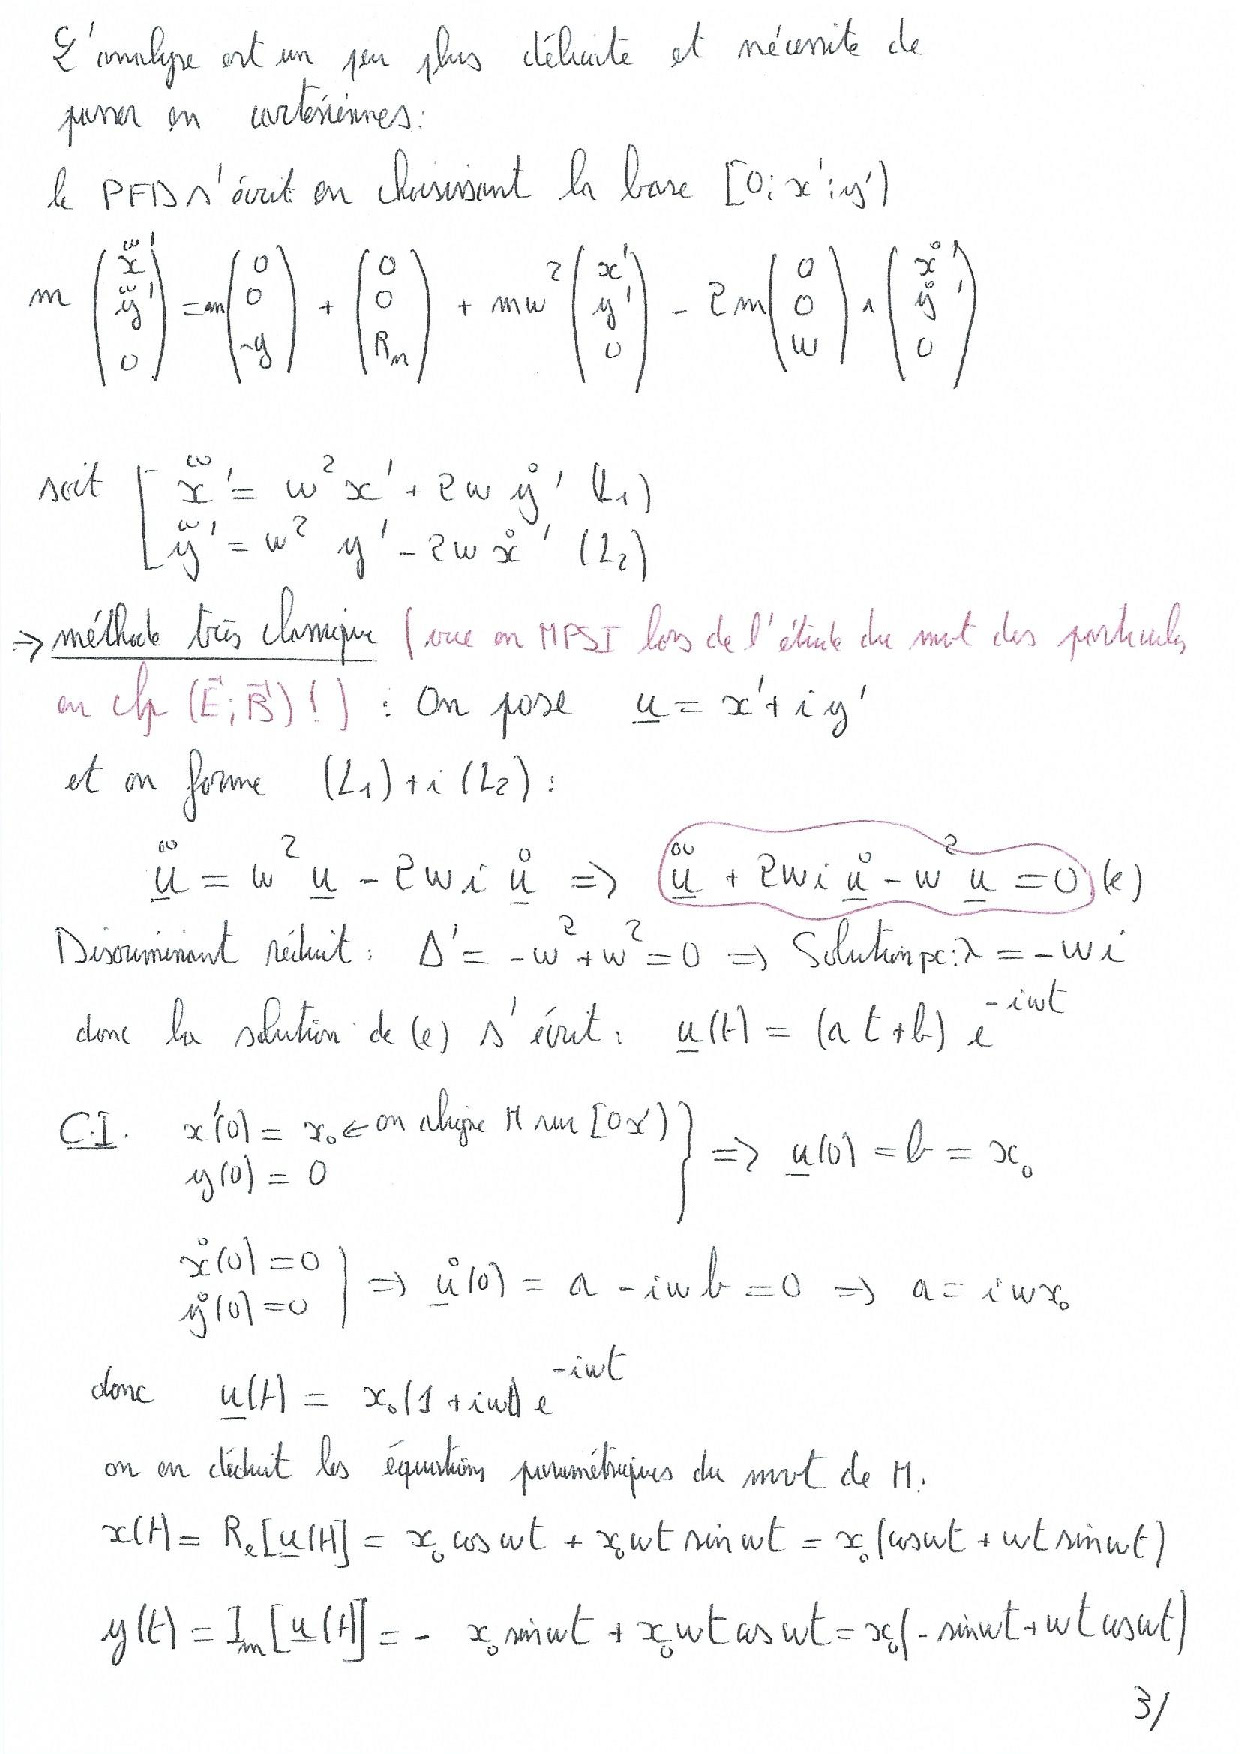 L'analyse est un peu plus délicate et nécessite de
passer en cartésiennes:
le PFD s'écrit en choisissant la base [O; x'; y')
m (ẍ' ÿ' 0) = m (0 0 -g) + (0 0 Rₙ) + mω² (x' y' 0) - 2m (0 0 ω) ∧ (ẋ' ẏ' 0)
soit [ ẍ' = ω² x' + 2ω ẏ' (L₁)
ÿ' = ω² y' - 2ω ẋ' (L₂)
⇒ méthode très classique (vue en MPSI lors de l'étude du mvt des particules
en chp (E⃗; B⃗) !) : On pose u = x' + i y'
et on forme (L₁) + i (L₂) :
ü = ω² u - 2ω i u̇ ⇒ ü + 2ω i u̇ - ω² u = 0 (e)
Discriminant réduit : Δ' = -ω² + ω² = 0 ⇒ Solution pc: λ = -ω i
donc la solution de (e) s'écrit : u(t) = (a t + b) e^(-iωt)
C.I. x'(0) = x₀ ← on aligne M sur [Ox')
y(0) = 0 } ⇒ u(0) = b = x₀
ẋ(0) = 0
ẏ(0) = 0 } ⇒ u̇(0) = a - iω b = 0 ⇒ a = i ω x₀
donc u(t) = x₀ (1 + iωt) e^(-iωt)
on en déduit les équations paramétriques du mvt de M.
x(t) = Re[u(t)] = x₀ cos ωt + x₀ ωt sin ωt = x₀ (cos ωt + ωt sin ωt)
y(t) = Im[u(t)] = - x₀ sin ωt + x₀ ωt cos ωt = x₀ (- sin ωt + ωt cos ωt)
3/